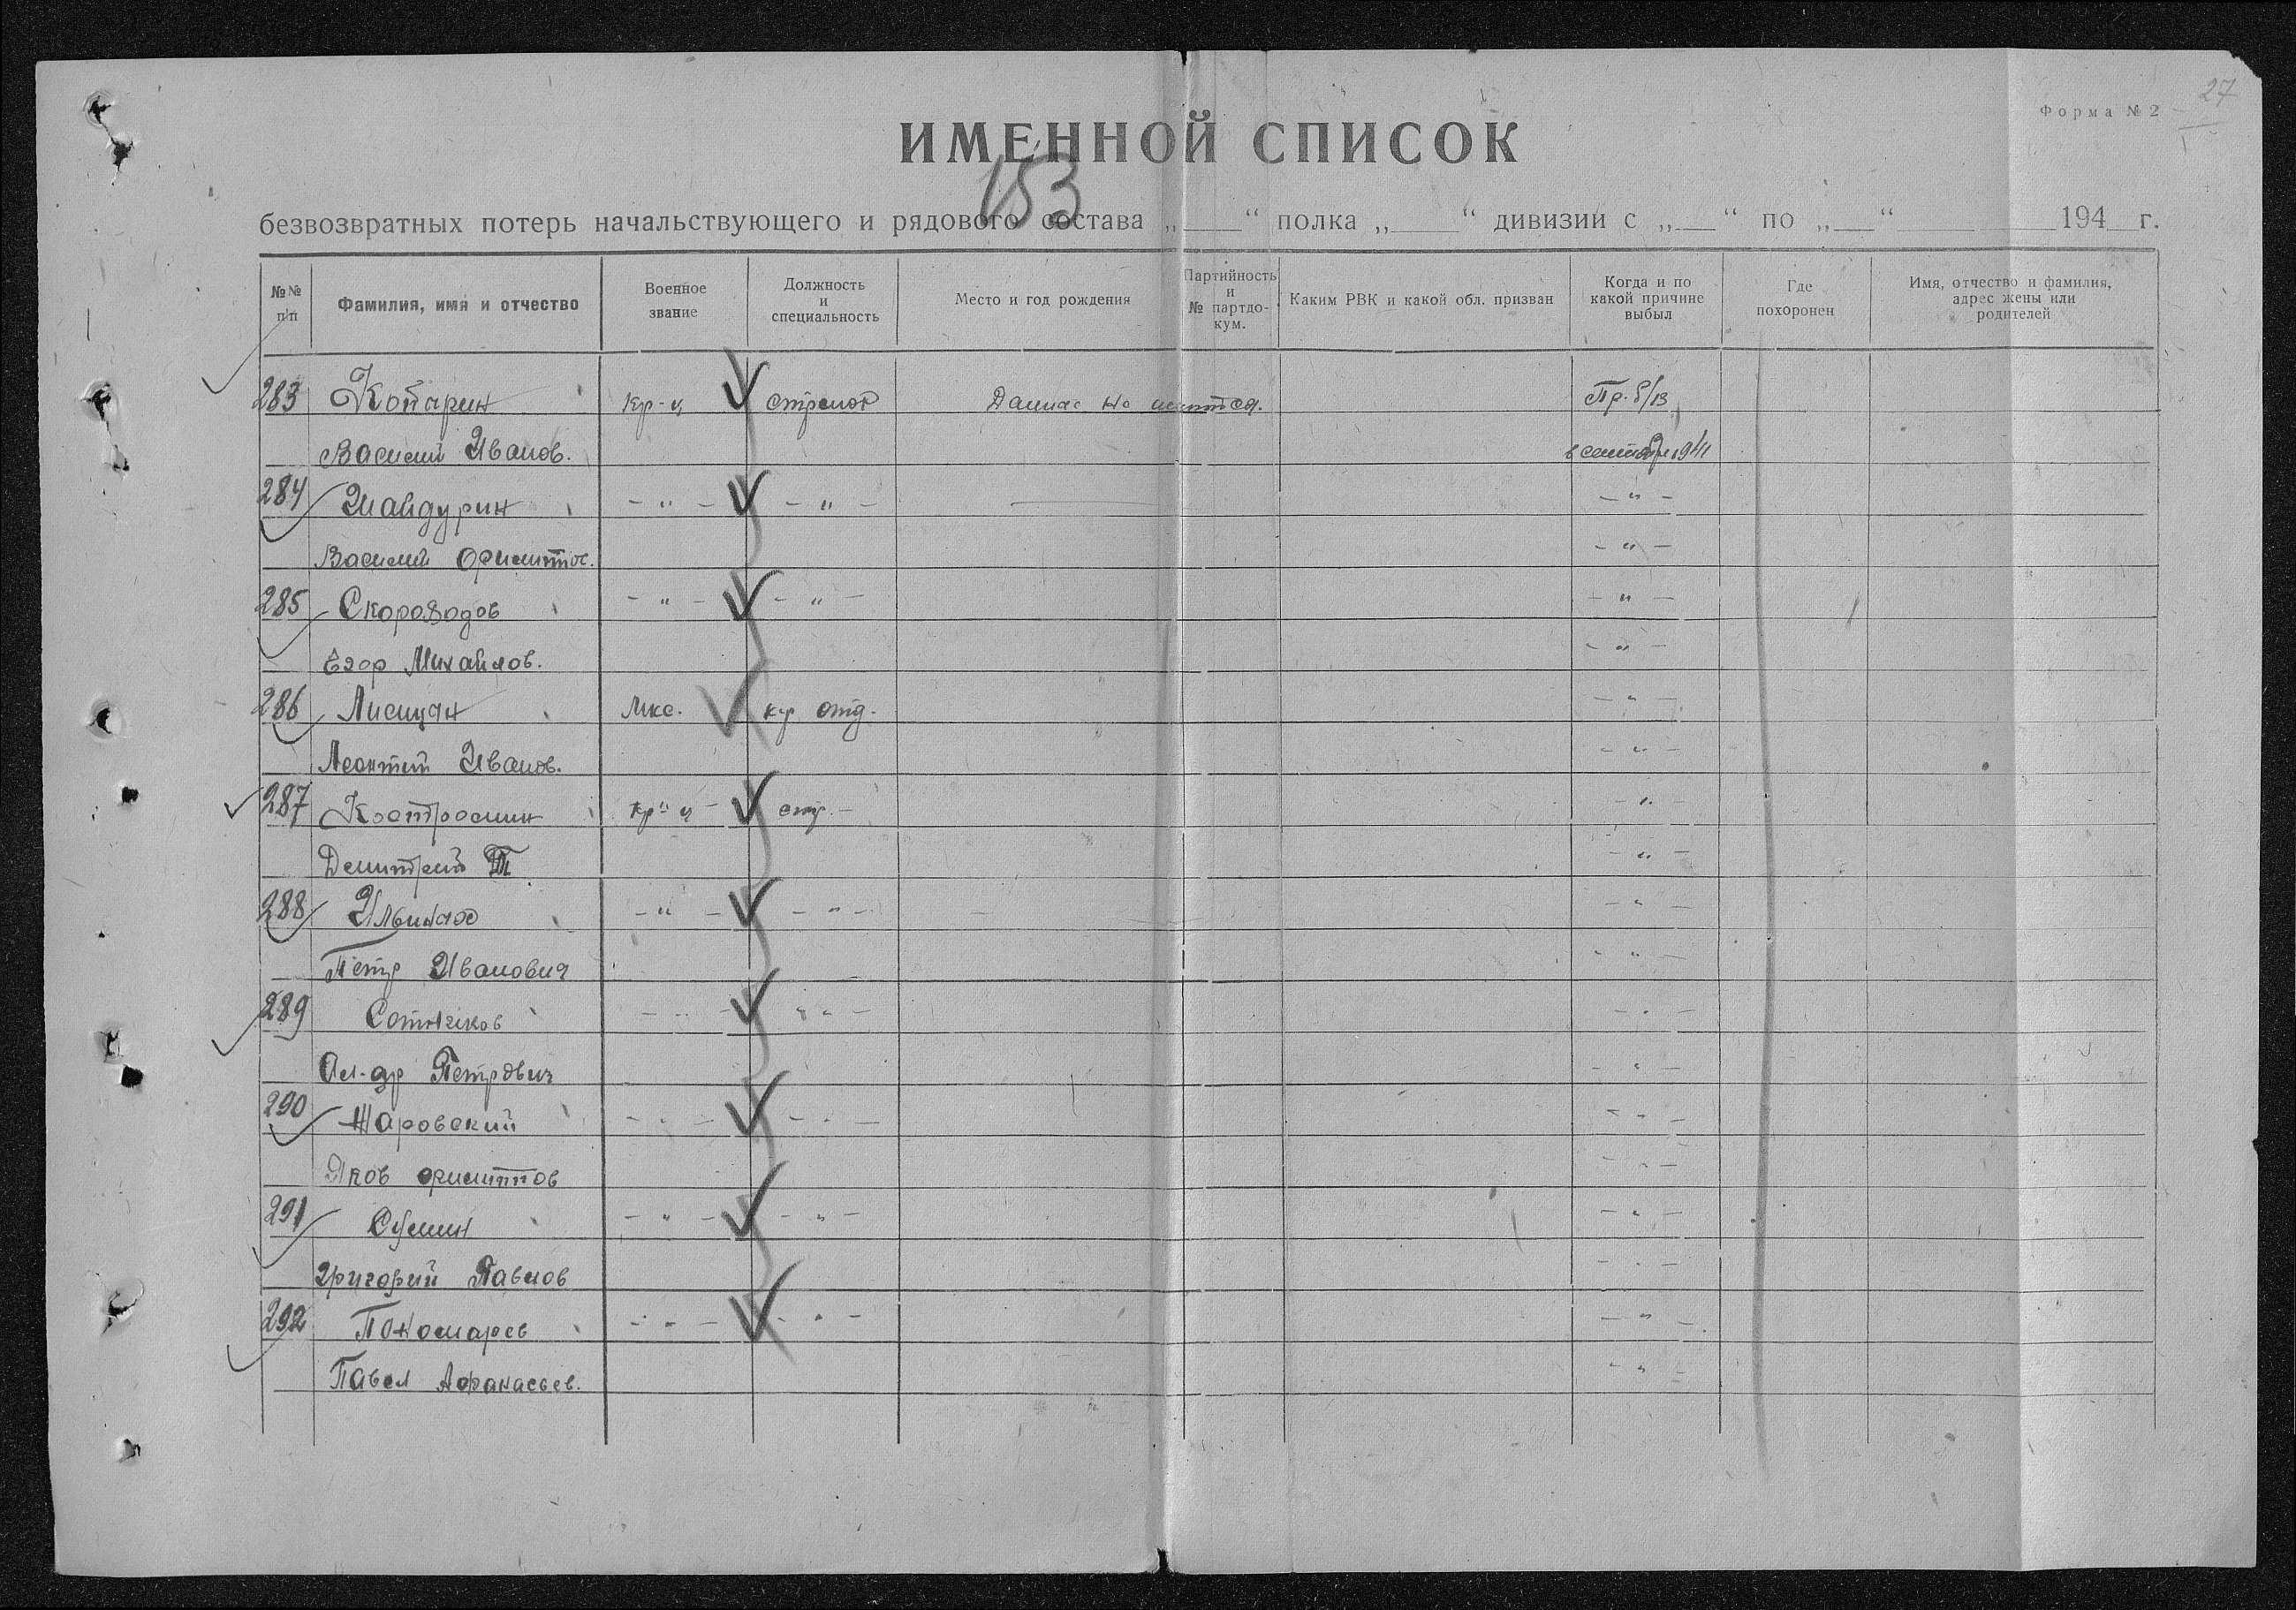 27
Форма № 2
ИМЕННОЙ СПИСОК
153
безвозвратных потерь начальствующего и рядового состава „ “ полка „ “ дивизии с „ “ по „ “ 194 г.
№№ п/п Фамилия, имя и отчество Военное звание Должность и специальность Место и год рождения Партийность и № партдокум. Каким РВК и какой обл. призван Когда и по какой причине выбыл Где похоронен Имя, отчество и фамилия, адрес жены или родителей
283 Копарин кр-ц стрелок Пр. б/в
Василий Иванов. в сентябр 1941
284 - " - - " - - " -
Василий Филиппов. - " -
285 Скороводов - " - - " - - " -
Егор Михайлов. - " -
286 Лисицан Мкс. ку отд. - " -
Леонтий Иванов. - " -
287 кр-ц стр. - " -
Дмитрий - " -
288 - " - - " - - " -
Петр Иванович - " -
289 Сотников - " - - " - - " -
Ал-др Петрович - " -
290 Жаровский - " - - " - - " -
Яков Филиппов - " -
291 - " - - " - - " -
Григорий Павлов - " -
292 Пономарев - " - - " - - " -
Павел Афанасьев. - " -